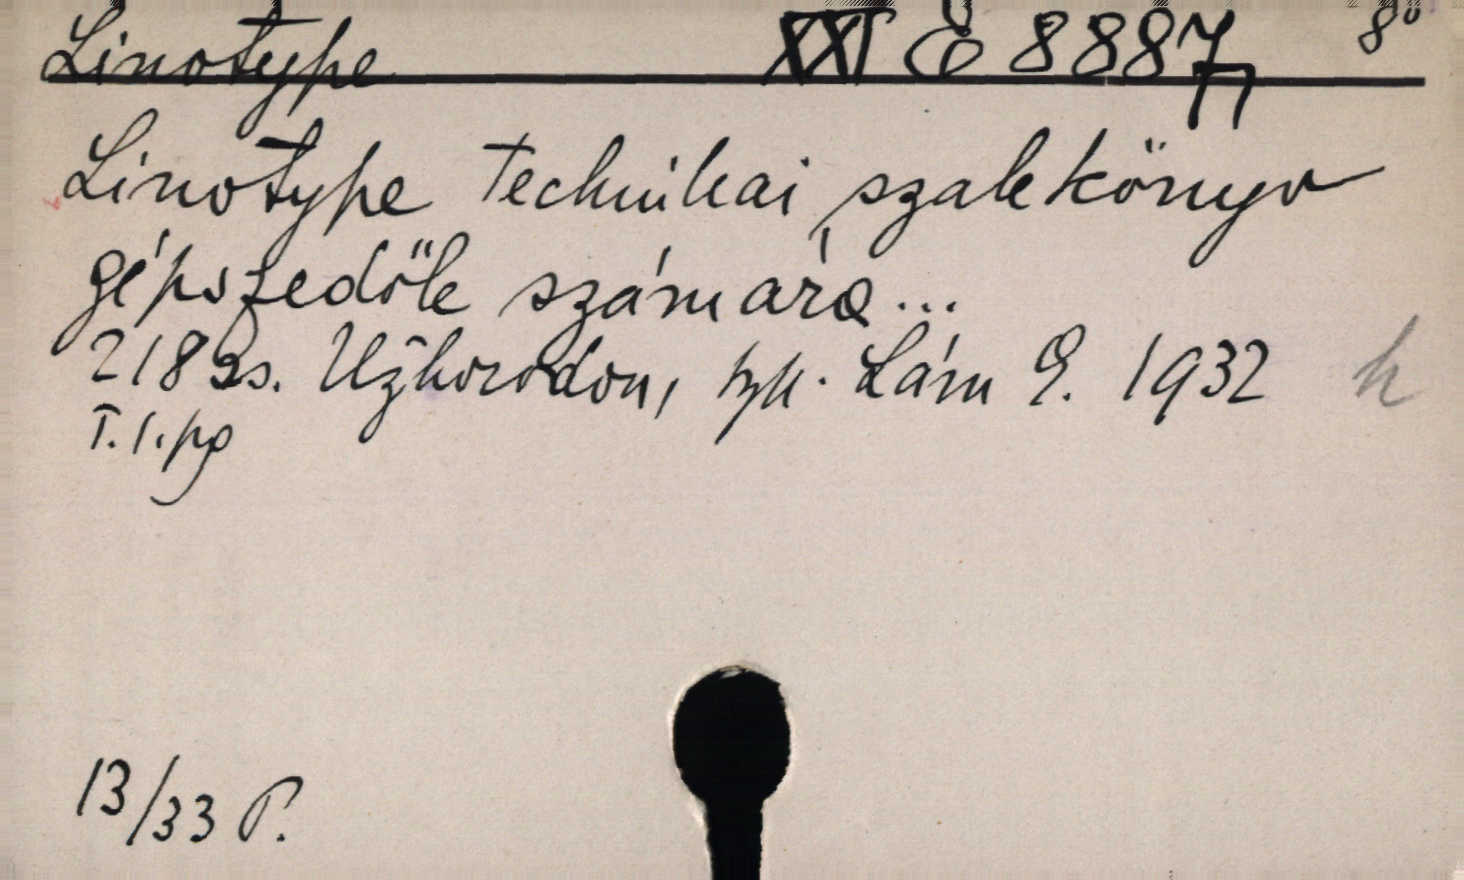 Linotype XXI É 8887 8°
Linotype technikai szakkönyv
gépszedők számára...
218 s. Užhorodon, Lám E. 1932 h
T. I. pg
13/33 P.